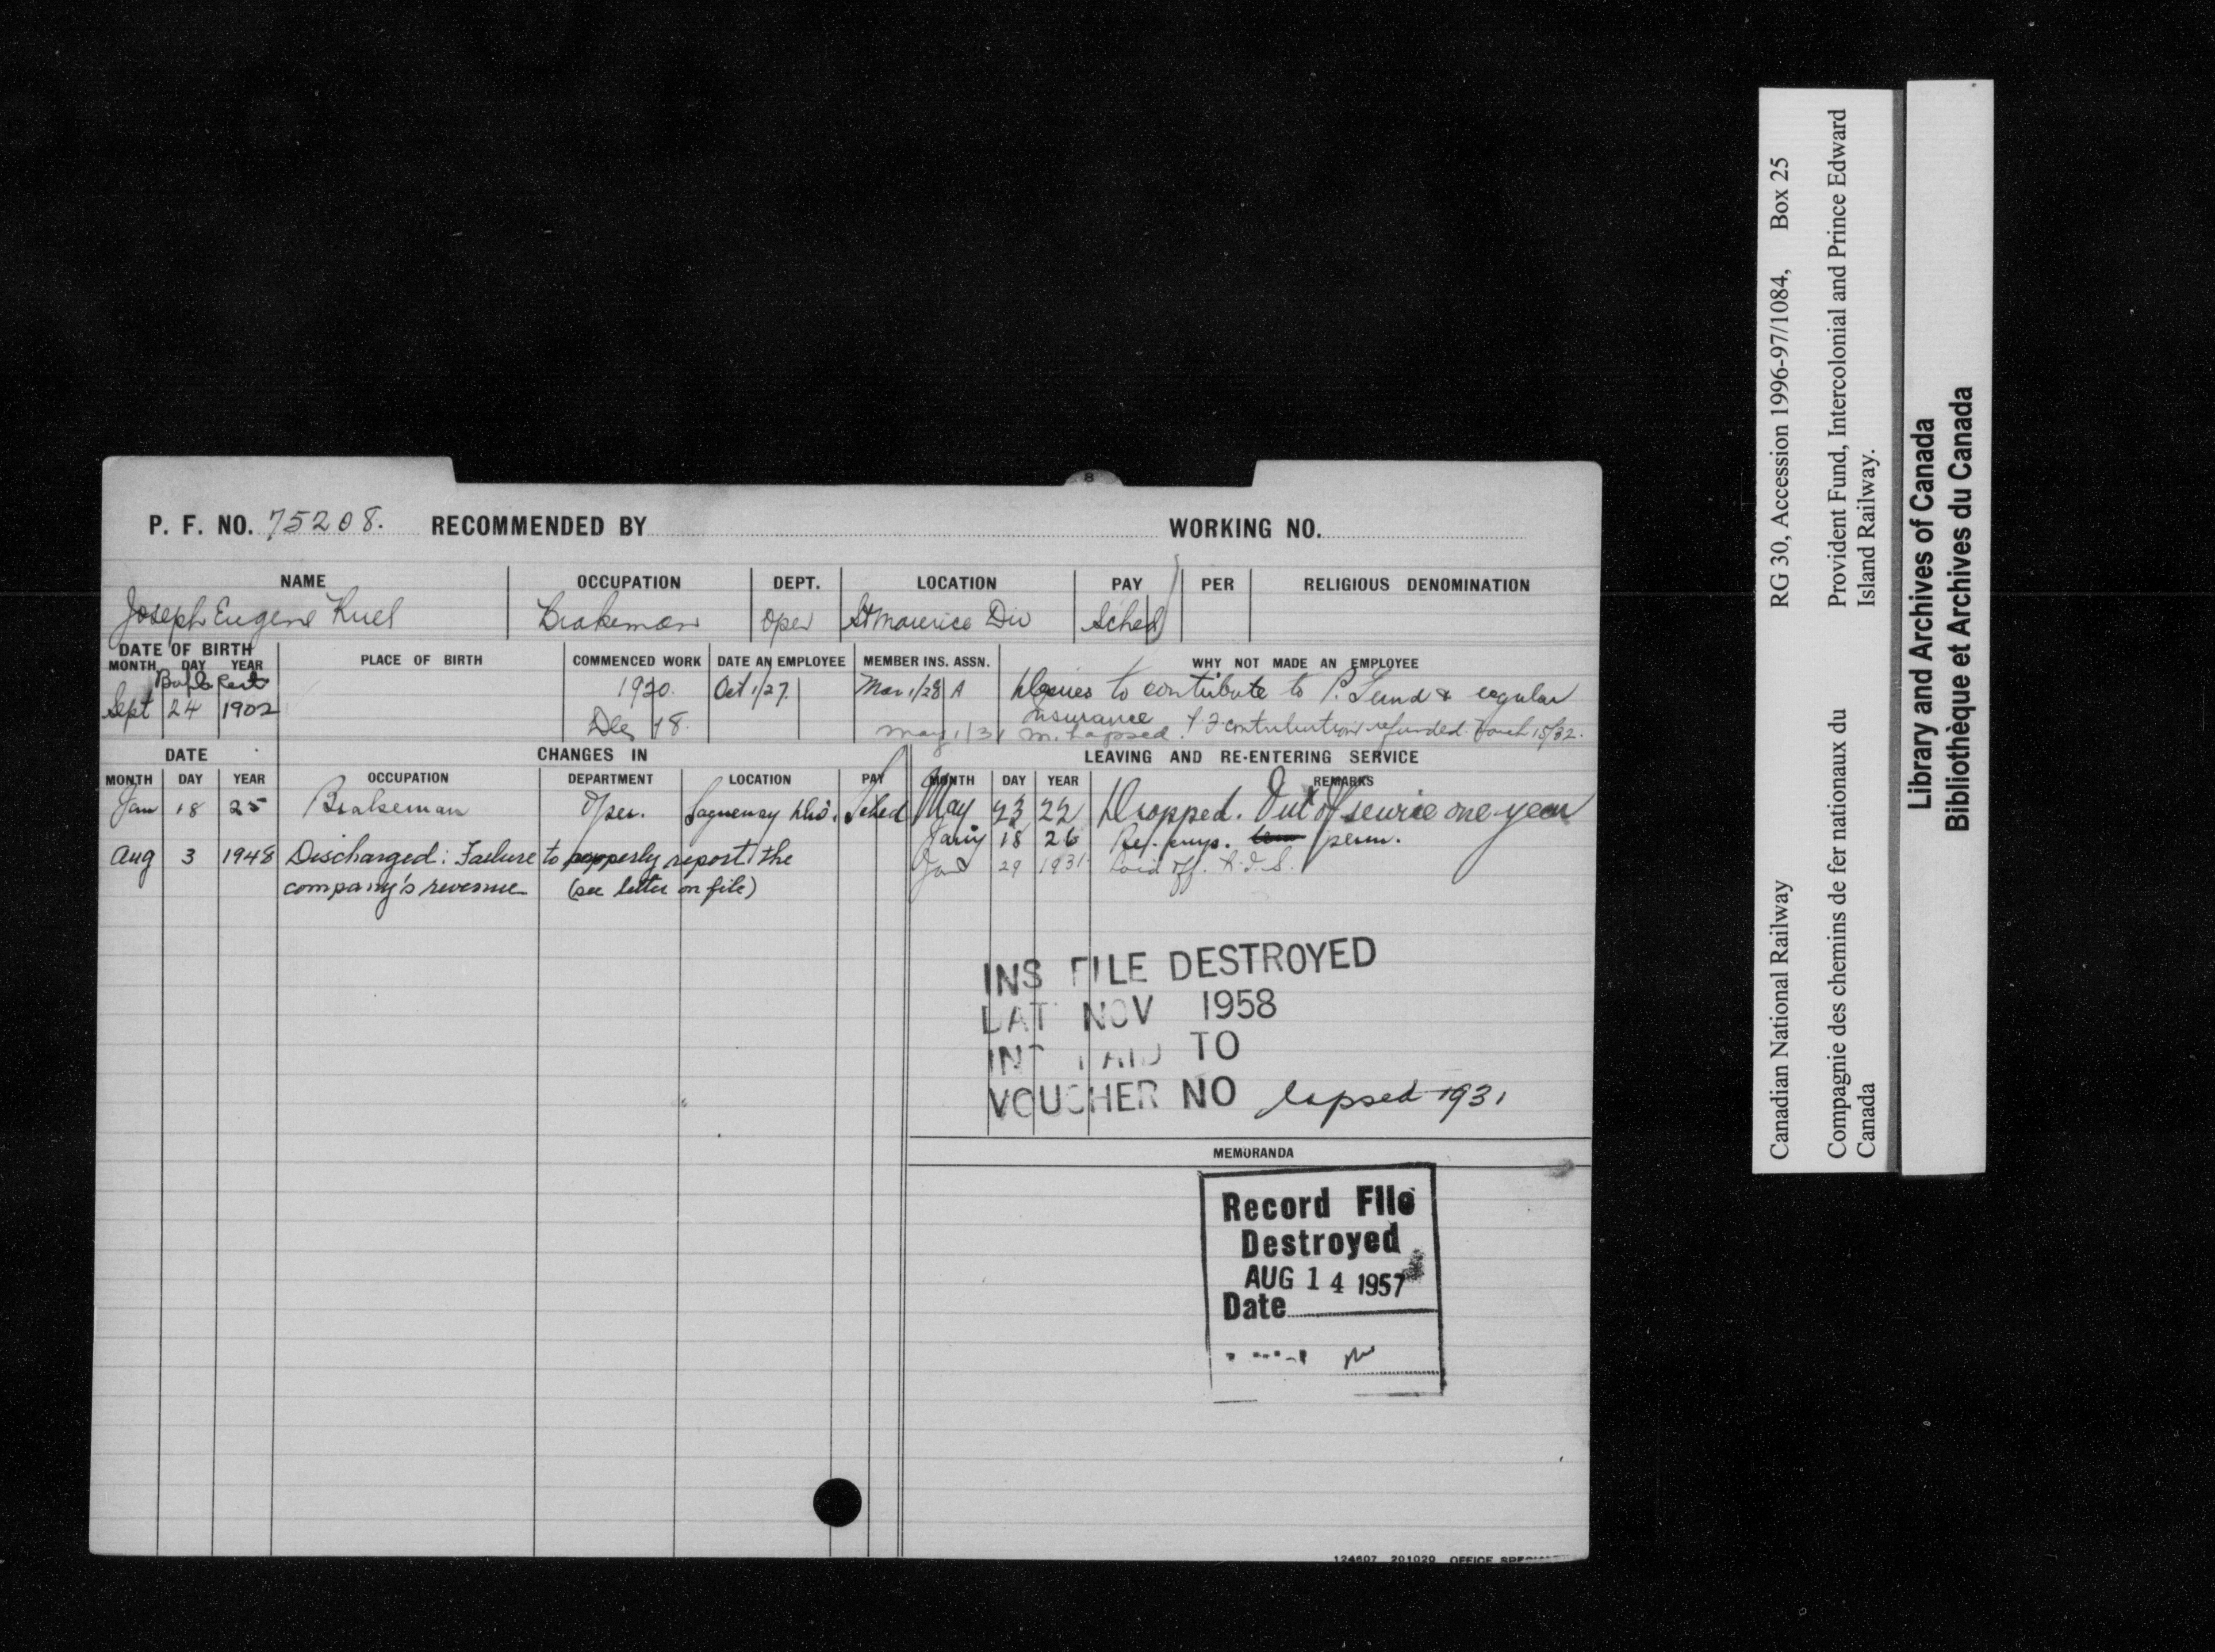 P. F. NO. 75208. RECOMMENDED BY WORKING NO.
NAME OCCUPATION DEPT. LOCATION PAY PER RELIGIOUS DENOMINATION
Joseph Eugene Ruel Brakeman Oper St Maurice Div Sched
DATE OF BIRTH
MONTH DAY YEAR PLACE OF BIRTH COMMENCED WORK DATE AN EMPLOYEE MEMBER INS. ASSN. WHY NOT MADE AN EMPLOYEE
Bapt Cert 1920. Oct 1/27. Mar 1/28 A to contribute to P. Fund & regular
Sept 24 1902 insurance
Dec 18. May 1/31 m. Lapsed. P F contributions refunded 15/32.
DATE CHANGES IN LEAVING AND RE-ENTERING SERVICE
MONTH DAY YEAR OCCUPATION DEPARTMENT LOCATION PAY MONTH DAY YEAR REMARKS
Jan 18 25 Brakeman Oper. Saguenay Div. Sched May 23 22 Dropped. Out of service one year
Jany 18 26 perm.
Aug 3 1948 Discharged: Failure to properly report the
Jan 29 1931 Laid off.
company's revenue (see letter on file)
INS FILE DESTROYED
DAT NOV 1958
TO
VOUCHER NO lapsed 1931
MEMORANDA
Record File
Destroyed
AUG 14 1957
Date
124607 201020 OFFICE
8
Canadian National Railway RG 30, Accession 1996-97/1084, Box 25
Compagnie des chemins de fer nationaux du Provident Fund, Intercolonial and Prince Edward
Canada Island Railway.
Library and Archives of Canada
Bibliothèque et Archives du Canada